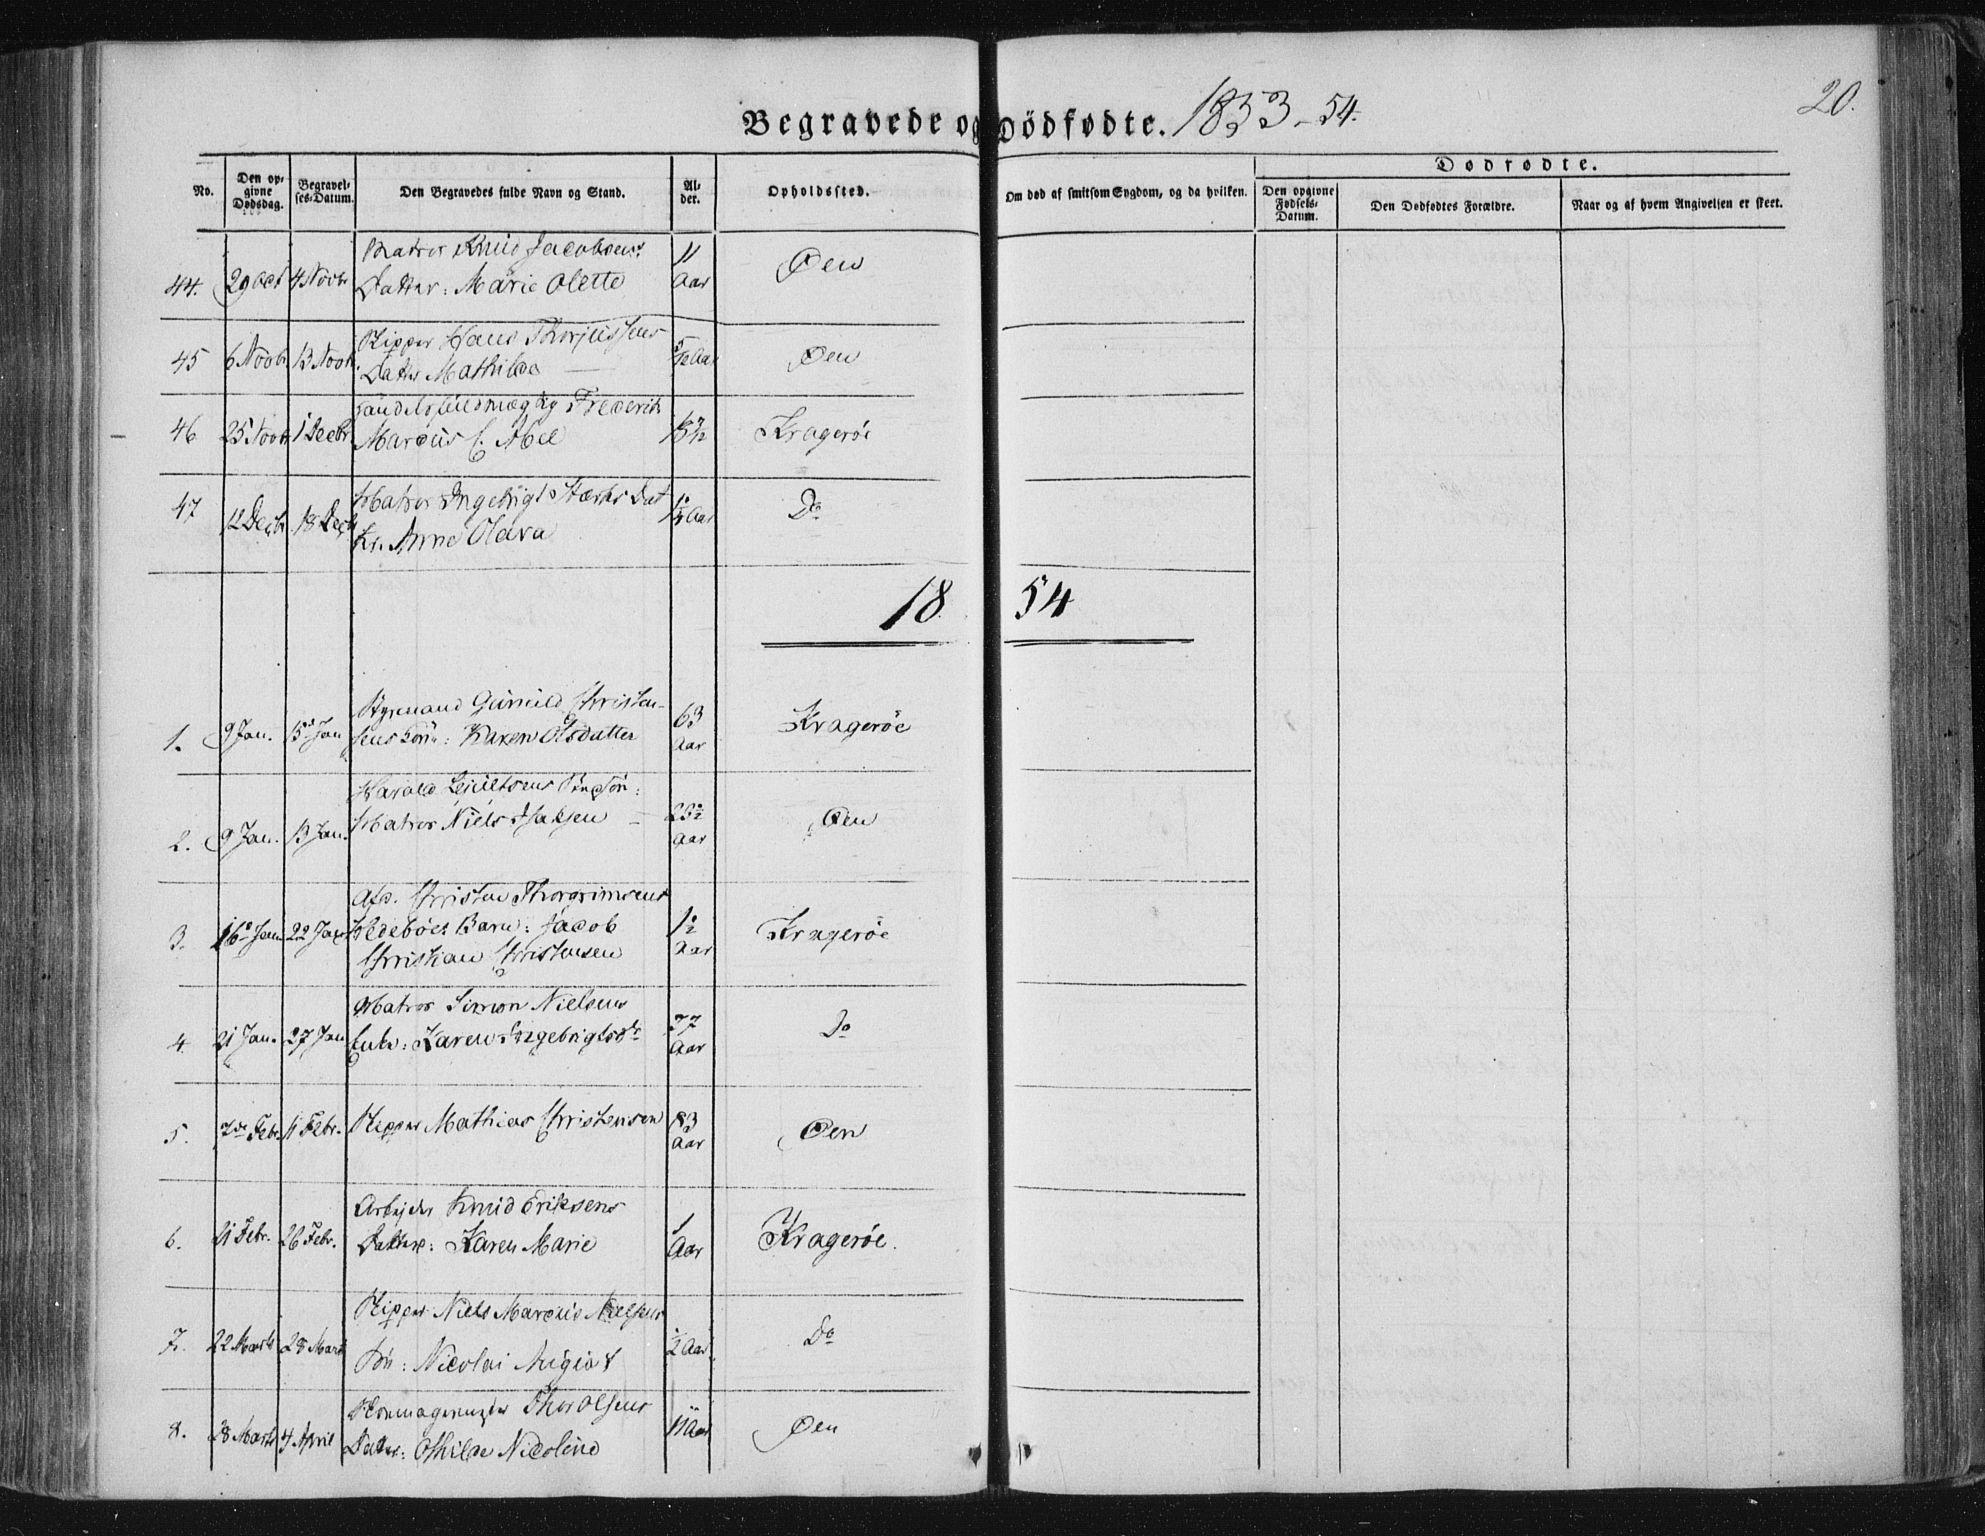 20.
Begravede og Dödfødte. 1853-54.
Dødfødte.
No.
Den opgivne Dødsdag.
Begravelses-Datum.
Den Begravedes fulde Navn og Stand.
Alder.
Opholdssted.
Om død af smitsom Sygdom, og da hvilken.
Den opgivne Fødsels-Datum.
Den Dødfødtes Forældre.
Naar og af hvem Angivelsen er skeet.
Matros Knud Jacobsens 11
44. 29 Oct 4 Novbr Datter: Marie Olette Aar Øen
Skipper Hans Thorjussens
45 6 Novbr. 13 Novbr. Datter Mathilde Aar Øen
Frederik
46 25 Novbr. 1 Decbr. Marcus C. Abel Kragerøe
47 Matros Ingebrigt Dat
12 Decbr. 18 Decbr. ter. Anne Olava Aar Do
18 54
Styrmand Christen- 63
1. 9 Jan. 15 Jan sens Karen Olsdatter Aar Kragerøe
Harald
2. 9 Jan. 13 Jan. Matros Niels Aar Øen
Afd. Christen Thorgrimsens
3. 16 Jan 22 Jan Barn: Jacob 1½ Aar Kragerøe
Christian Christensen
Matros Simon Nielsens 37
4. 21 Jan. 27 Jan Enke: Karen Ingebrigtsdtr Aar Do
5. 7de Febr. 11 Febr. Skipper Mathias Christensen 83 Aar Øen
Arbejder Knud Eriksens 1
6. 11 Febr. 26 Febr. Datter: Karen Marie Aar Kragerøe.
Skipper Niels Marcus Nielsens
7. 22 Marts 28 Marts Sön: Nicolai August ½ Aar Do
Skomagermester Thor Olsens
8. 28 Marts 4 April Datter: Othilde Nicoline 11 Aar Øen